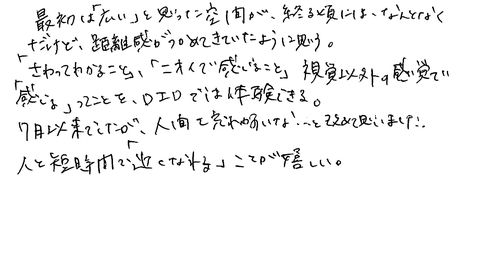 最初は「広い」と思った空間が、終る頃には、なんとなく
だけど、距離感がつかめてきていたように思う。
「さわってわかること」、「ニオイで感じること」視覚以外の感覚で
「感じる」ってことを、DIDでは体験できる。
7月以来でしたが、人間て
て思いました!!
人と短時間で「近くなれる」ことが嬉しい。